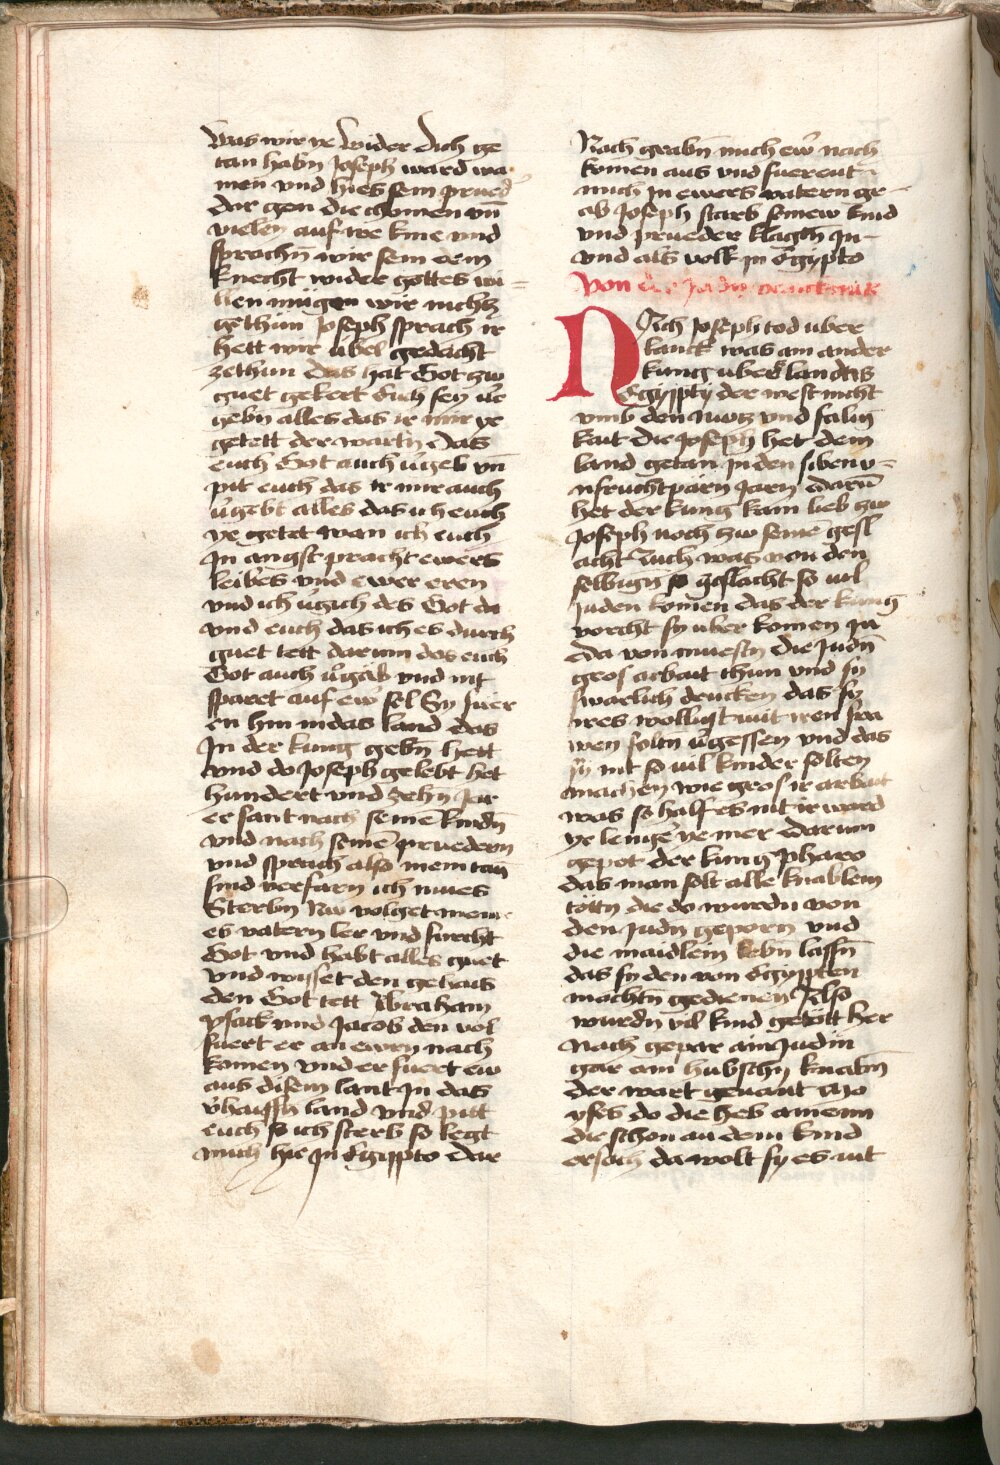 Was wir ye wider dich ge
tan habn Joseph ward wa
men vnd hies sein prued
dar gen die chomen vn̄
vielen auf ire knie vnd
sprachn̄ wir sein dein
knecht wider gottes wi
llen mügen wir nichtz
gethün Joseph sprach ir
hett mir übel gedacht
zethun das hat Got zw
guet gekert Euch sey v̈e
gebn̄ alles das ir mir ye
getett der wartn̄ das
euch Got auch v̈geb vn̄
pit euch das ir mir auch
v̈gebt alles das ich euch
ye getet wan ich euch
In angst pracht ewers
leibes vnd ewer eren
vnd ich v̈gich des Got da
vnd euch das ich es durch
guet tett darum das euch
Got auch v̈gäb vnd nit
sparet auf ew̄ sel Sy fuer
en hin in das land das
In der kunig gebn̄ hett
vnd do Joseph gelebt het
hundert vnd zehn Jar
er sant nach seinē kindn̄
vnd nach seinē pruedern
vnd sprach also mein taḡ
sind verfarn ich mues
Sterbn Nw volget mein
es vatern ler vnd furcht
Got vnd habt alles guet
vnd wisset den gehais
den Got tett Abraham
ysack vnd Jacob den vol
fuert er an ewrn nach
komen vnd er fuert ew
aus disem lant In das
v̈haissn̄ land vnd pitt
euch so ich sterb so legt
mich hie in Egippto dar
Nach grabn̄ mich ew̄ nach
komen aus vnd fuerent
mich in ewers vatern gr
ab Joseph starb seinew kind
vnd prueder klagtn In
vnd als volk in Egipto
Von der Judn
Nach Joseph tod uber
lanck was ain ander
kunig uber landes
Egippty der west nicht
vmb den nucz vnd sälig
kait die Joseph het dem
land getan in den siben v
nfruchtpärn Jarn darū
het der kunig kain lieb zw
Joseph noch zw seinē gesl
acht Auch was von den
selbign̄ geslacht so uil
Juden komen das der kuniḡ
vorcht sy uber komen In
da von muestn̄ die Judn̄
gros arbait thun vnd sy
swärlich drucken das sy
ires wollust mit iren fra
wen soltn̄ v̈gessen vnd das
sy nit so uil kinder solten
machen wie gros ir arbait
was so half es nit ir ward
ye lenge ye mer darum
gepot der kunig pharo
das man solt alle knablein
tottn̄ die do wurdn von
den Judn̄ geporn vnd
die maidlein lebn̄ lassn̄
das sy den von Egippten
mochtn̄ gedienen Also
wurdn vil kind getött her
Nach gepar ain Judin
gar ain hubschn̄ knabn̄
der wart genant Mo
yses do die heb amenn
die schon an dem kind
ersach da wolt sy es nit